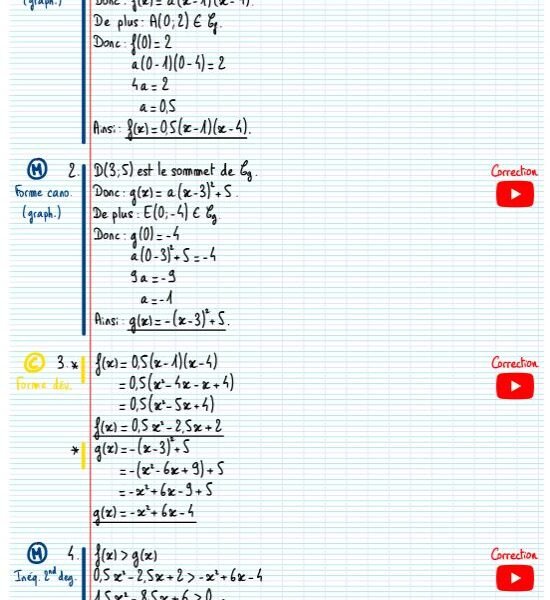 (graph.)
Donc: f(x) = a(x-1)(x-4).
De plus: A(0;2) ∈ 𝒞f.
Donc: f(0) = 2
a(0-1)(0-4) = 2
4a = 2
a = 0,5
Ainsi: f(x) = 0,5(x-1)(x-4).
M 2. D(3;5) est le sommet de 𝒞g. Correction
Forme cano. Donc: g(x) = a(x-3)²+5.
(graph.) De plus: E(0;-4) ∈ 𝒞g
Donc: g(0) = -4
a(0-3)²+5 = -4
9a = -9
a = -1
Ainsi: g(x) = -(x-3)²+5.
C 3. * f(x) = 0,5(x-1)(x-4) Correction
Forme dév. = 0,5(x²-4x-x+4)
= 0,5(x²-5x+4)
f(x) = 0,5x²-2,5x+2
* g(x) = -(x-3)²+5
= -(x²-6x+9)+5
= -x²+6x-9+5
g(x) = -x²+6x-4
M 4. f(x) > g(x) Correction
Inéq. 2nd deg. 0,5x²-2,5x+2 > -x²+6x-4
1,5x²-8,5x+6 > 0